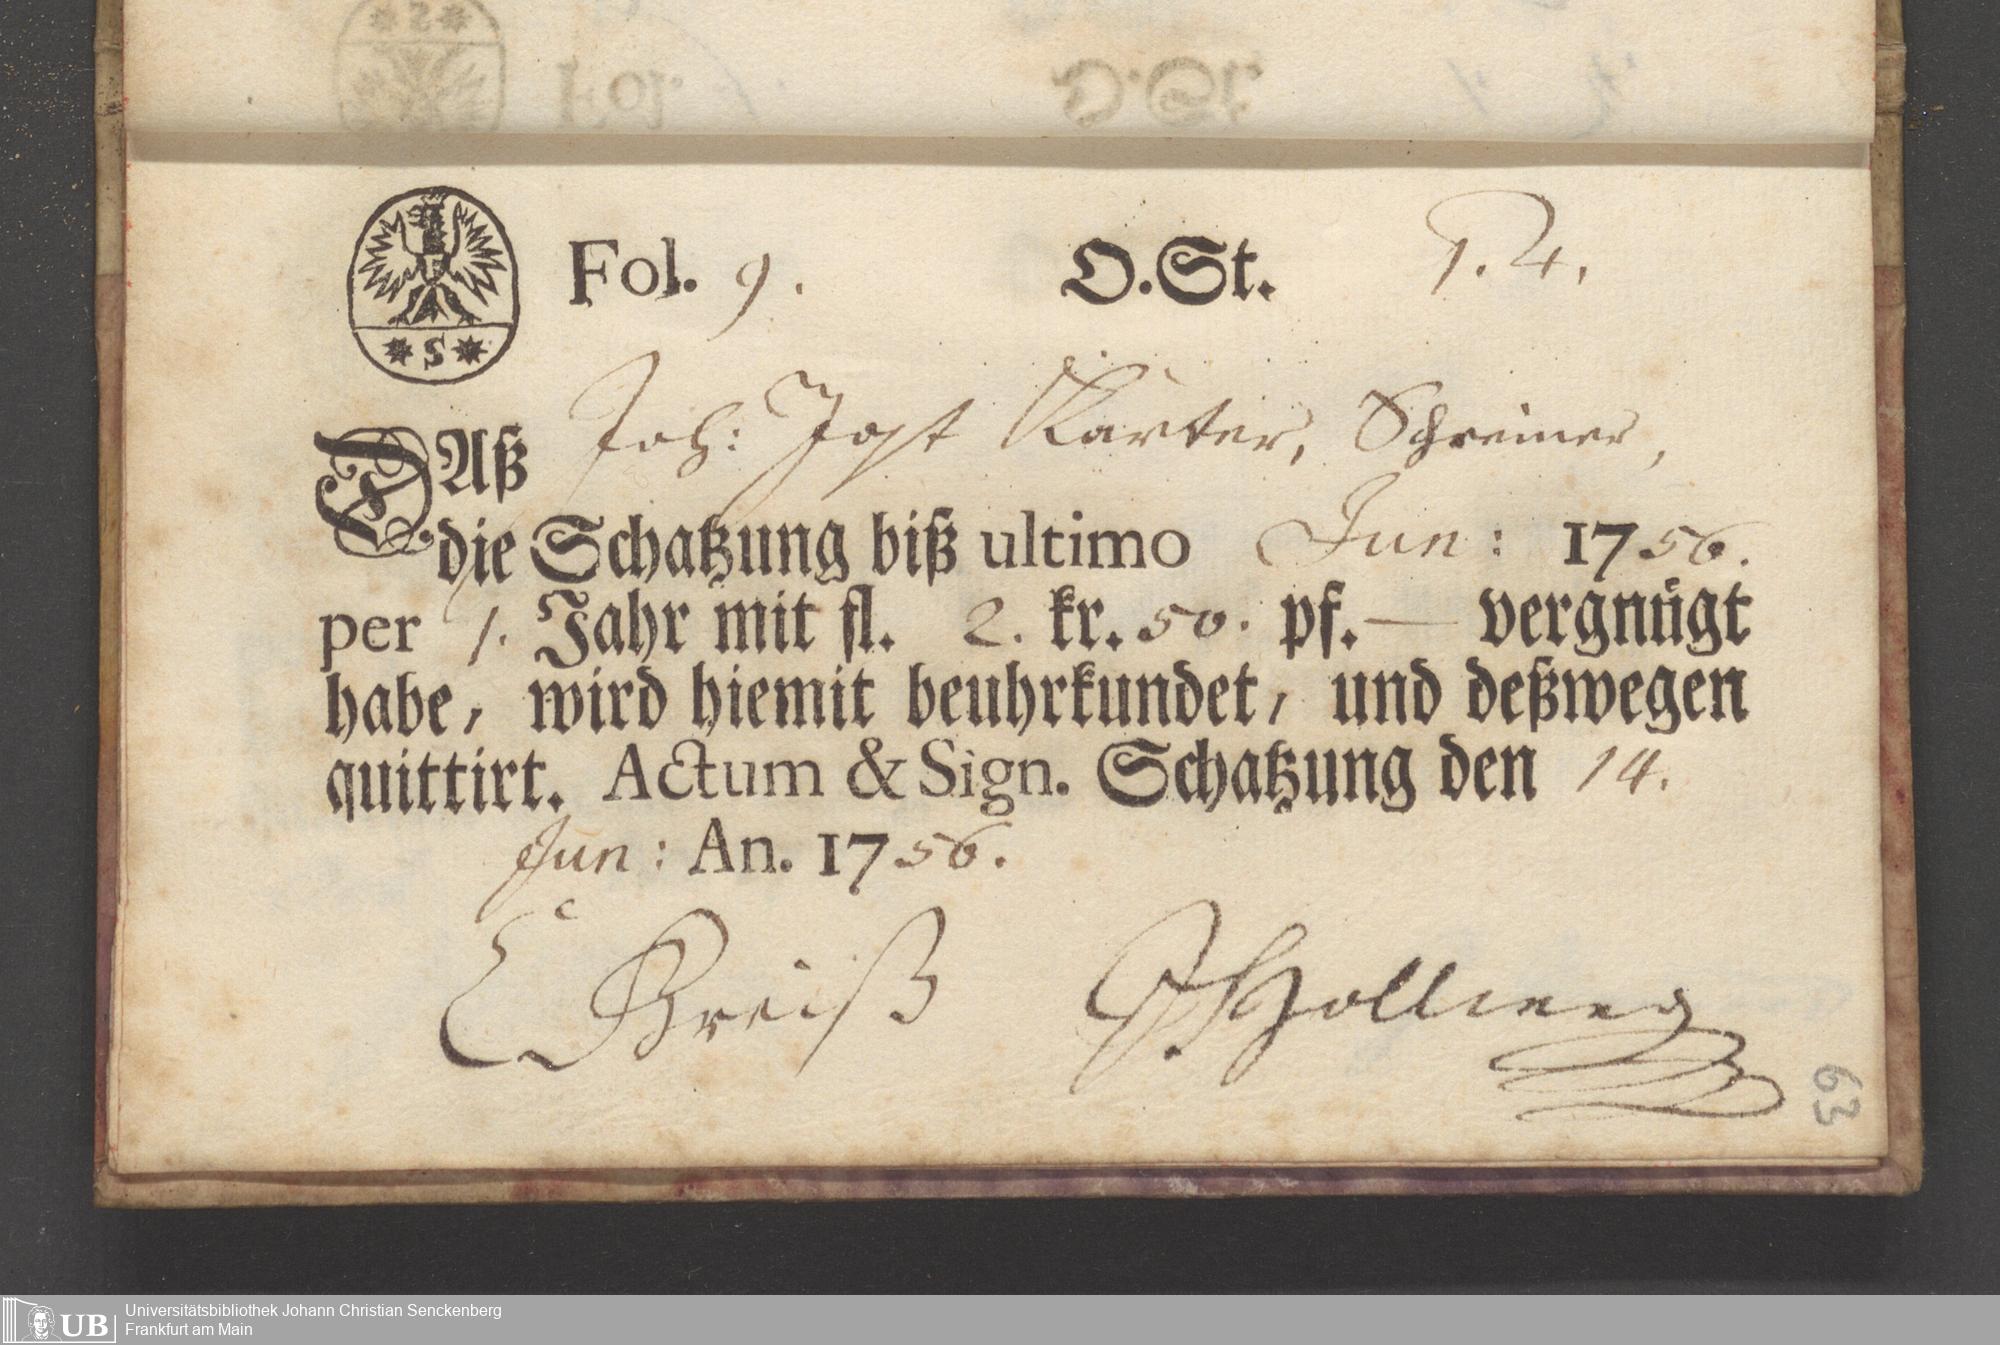 Fol. 9. O.St. P. 4.
S
DAß Joh: Jost Karter, Schreiner,
die Schatzung biß ultimo Jun: 1756.
per 1. Jahr mit fl. 2. kr. 50. pf. — vergnügt
habe, wird hiemit beuhrkundet, und deßwegen
quittirt. Actum & Sign. Schatzung den 14.
Jun: An. 1756.
Greiß Hollweg
63
UB Universitätsbibliothek Johann Christian Senckenberg
Frankfurt am Main